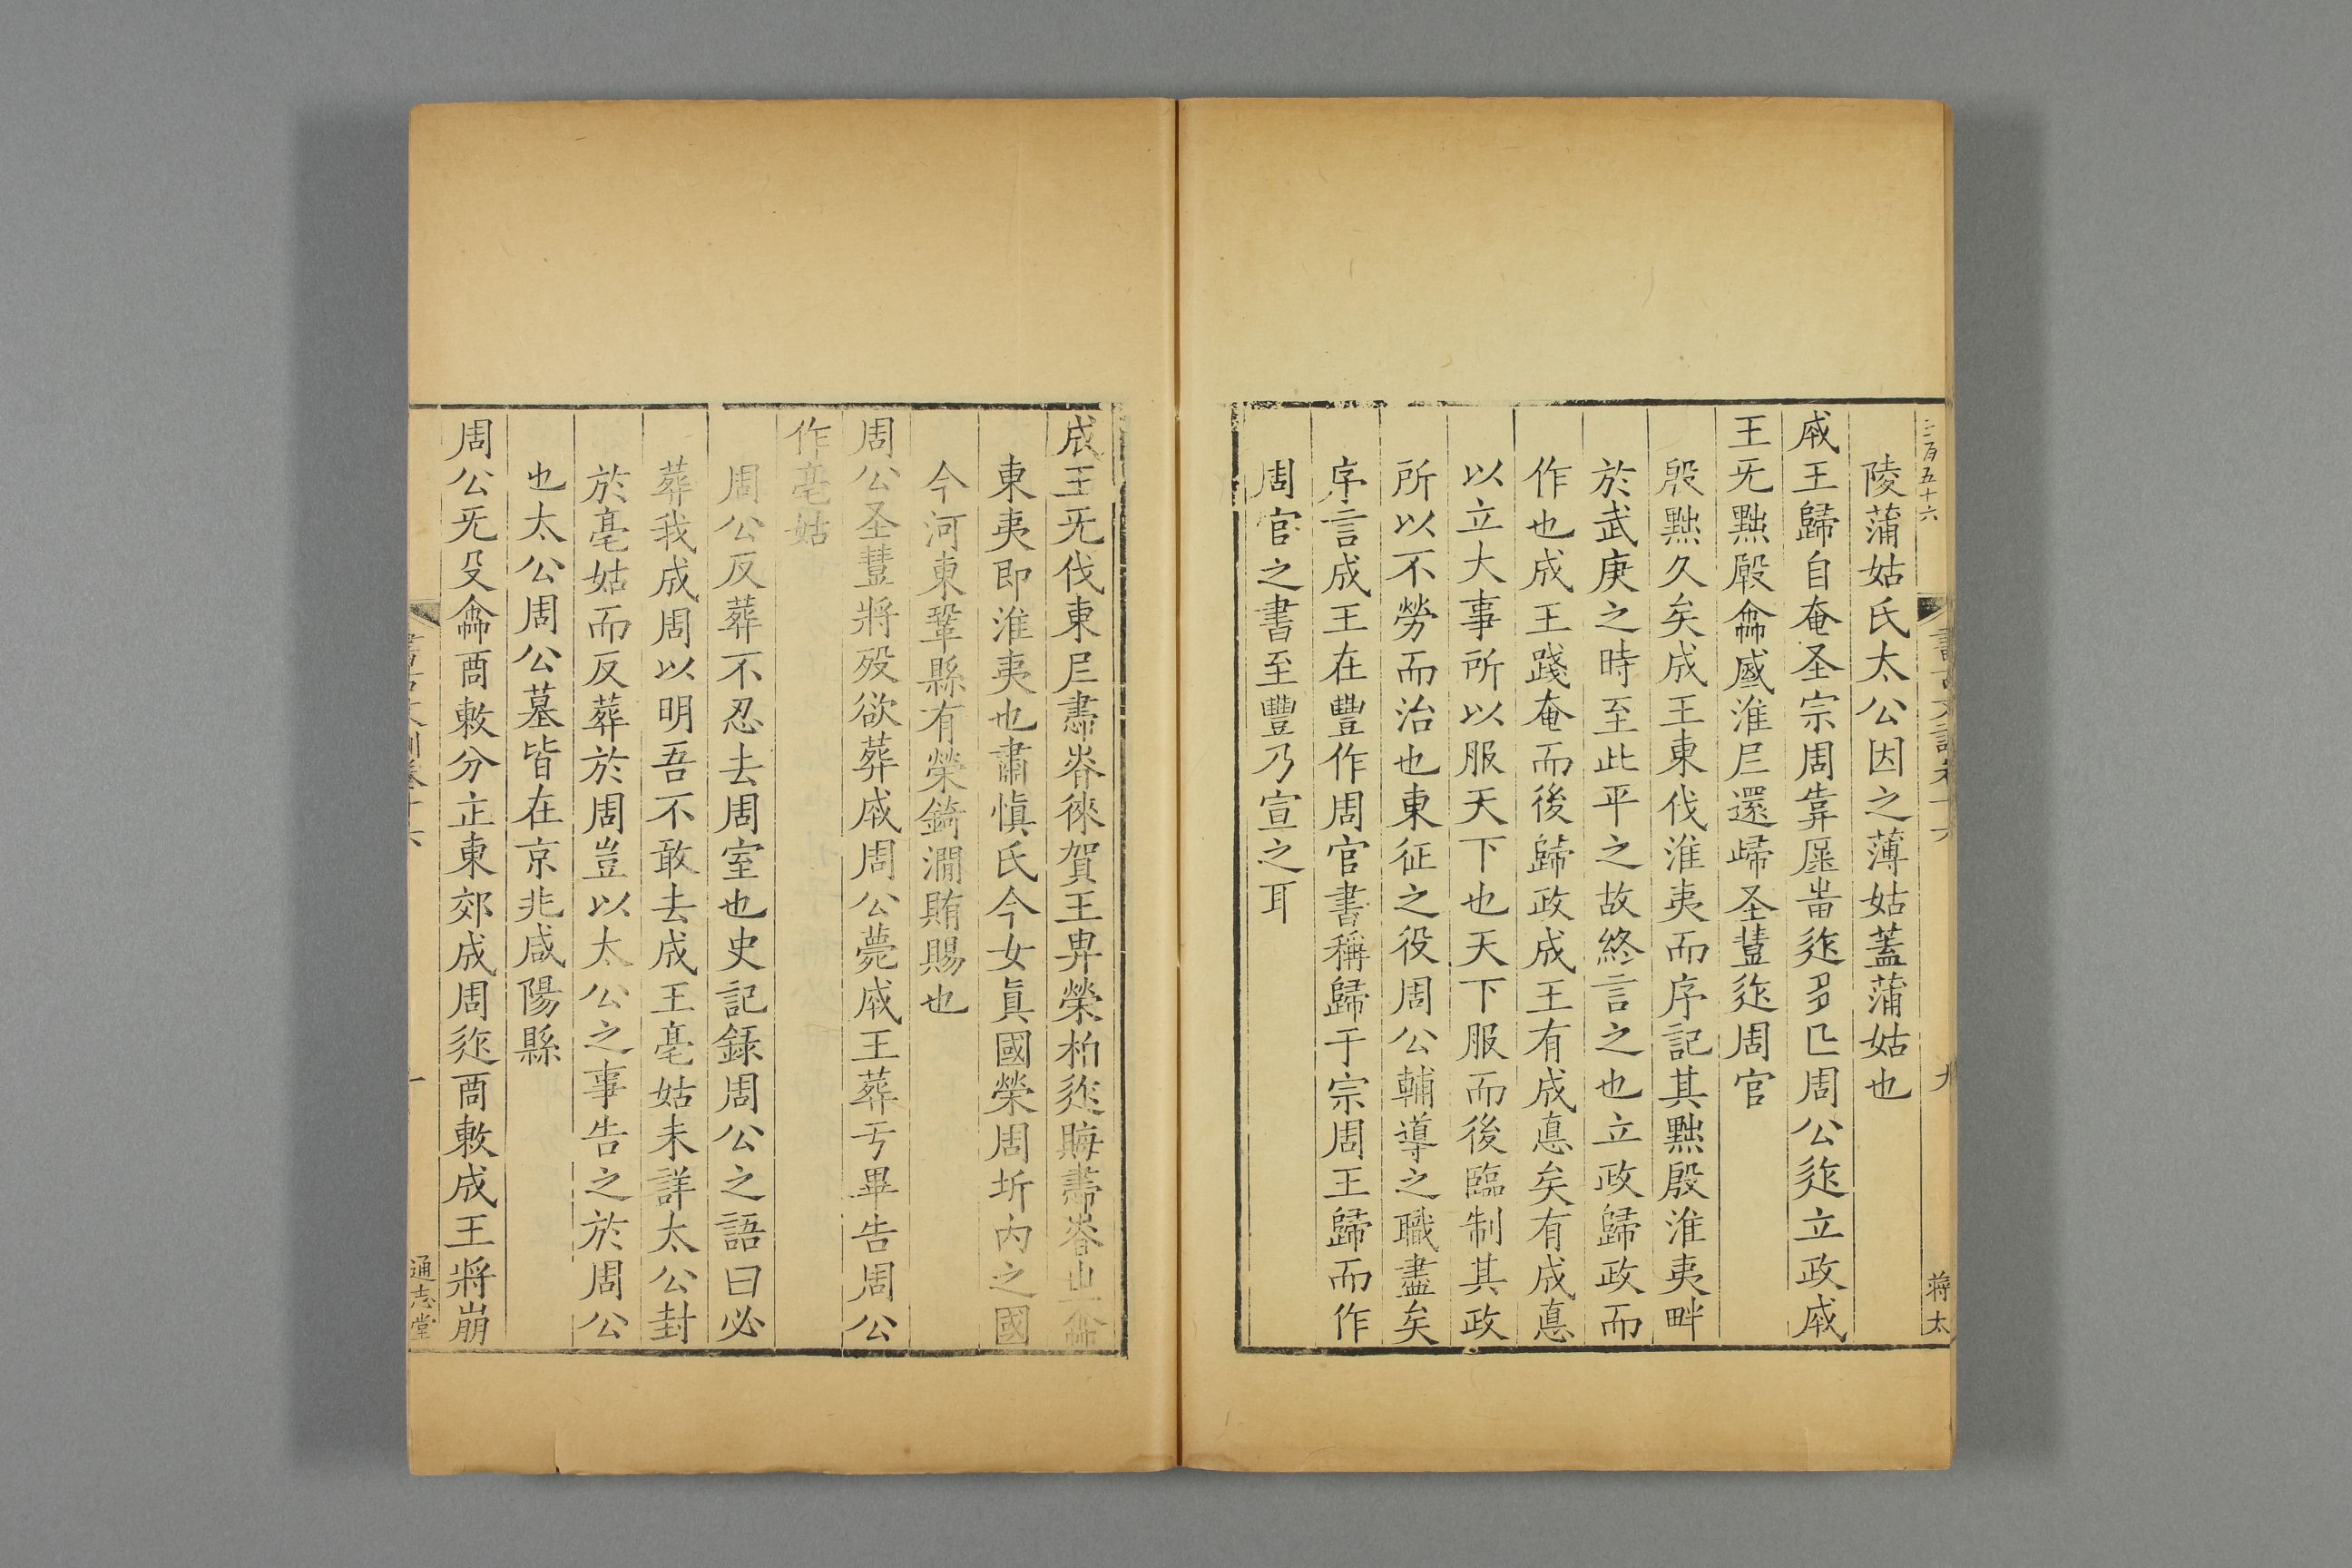 三百五十六
蔣太
陵蒲姑氏太公因之薄姑蓋蒲姑也
王歸自奄圣宗周靠厖邫迮多㔾周公迮立政
王旡黜殷龠淮𡰥還歸圣豐迮周官
殷黜久矣成王東伐淮夷而序記其黜殷淮夷畔
於武庚之時至此平之故終言之也立政歸政而
作也成王踐奄而後歸政成王有成悳矣有成悳
以立大事所以服天下也天下服而後臨制其政
所以不勞而治也東征之役周公輔導之職盡矣
序言成王在豐作周官書稱歸于宗周王歸而作
周官之書至豐乃宣之耳
成王旡伐東𡰥𦘔䇂徠賀王畀榮柏迮賄
東夷即淮夷也肅愼氏今女眞國榮周圻内之國
今河東鞏縣有榮錡澗賄賜也
周公圣豐將歿欲葬成周公薨成王葬亏畢告周公
作亳姑
周公反葬不忍去周室也史記錄周公之語曰必
葬我成周以明吾不敢去成王亳姑未詳太公封
於亳姑而反葬於周豈以太公之事告之於周公
也太公周公墓皆在京兆咸陽縣
周公旡殳龠㪽敕分正東郊成周迮敕成王將崩
通志堂